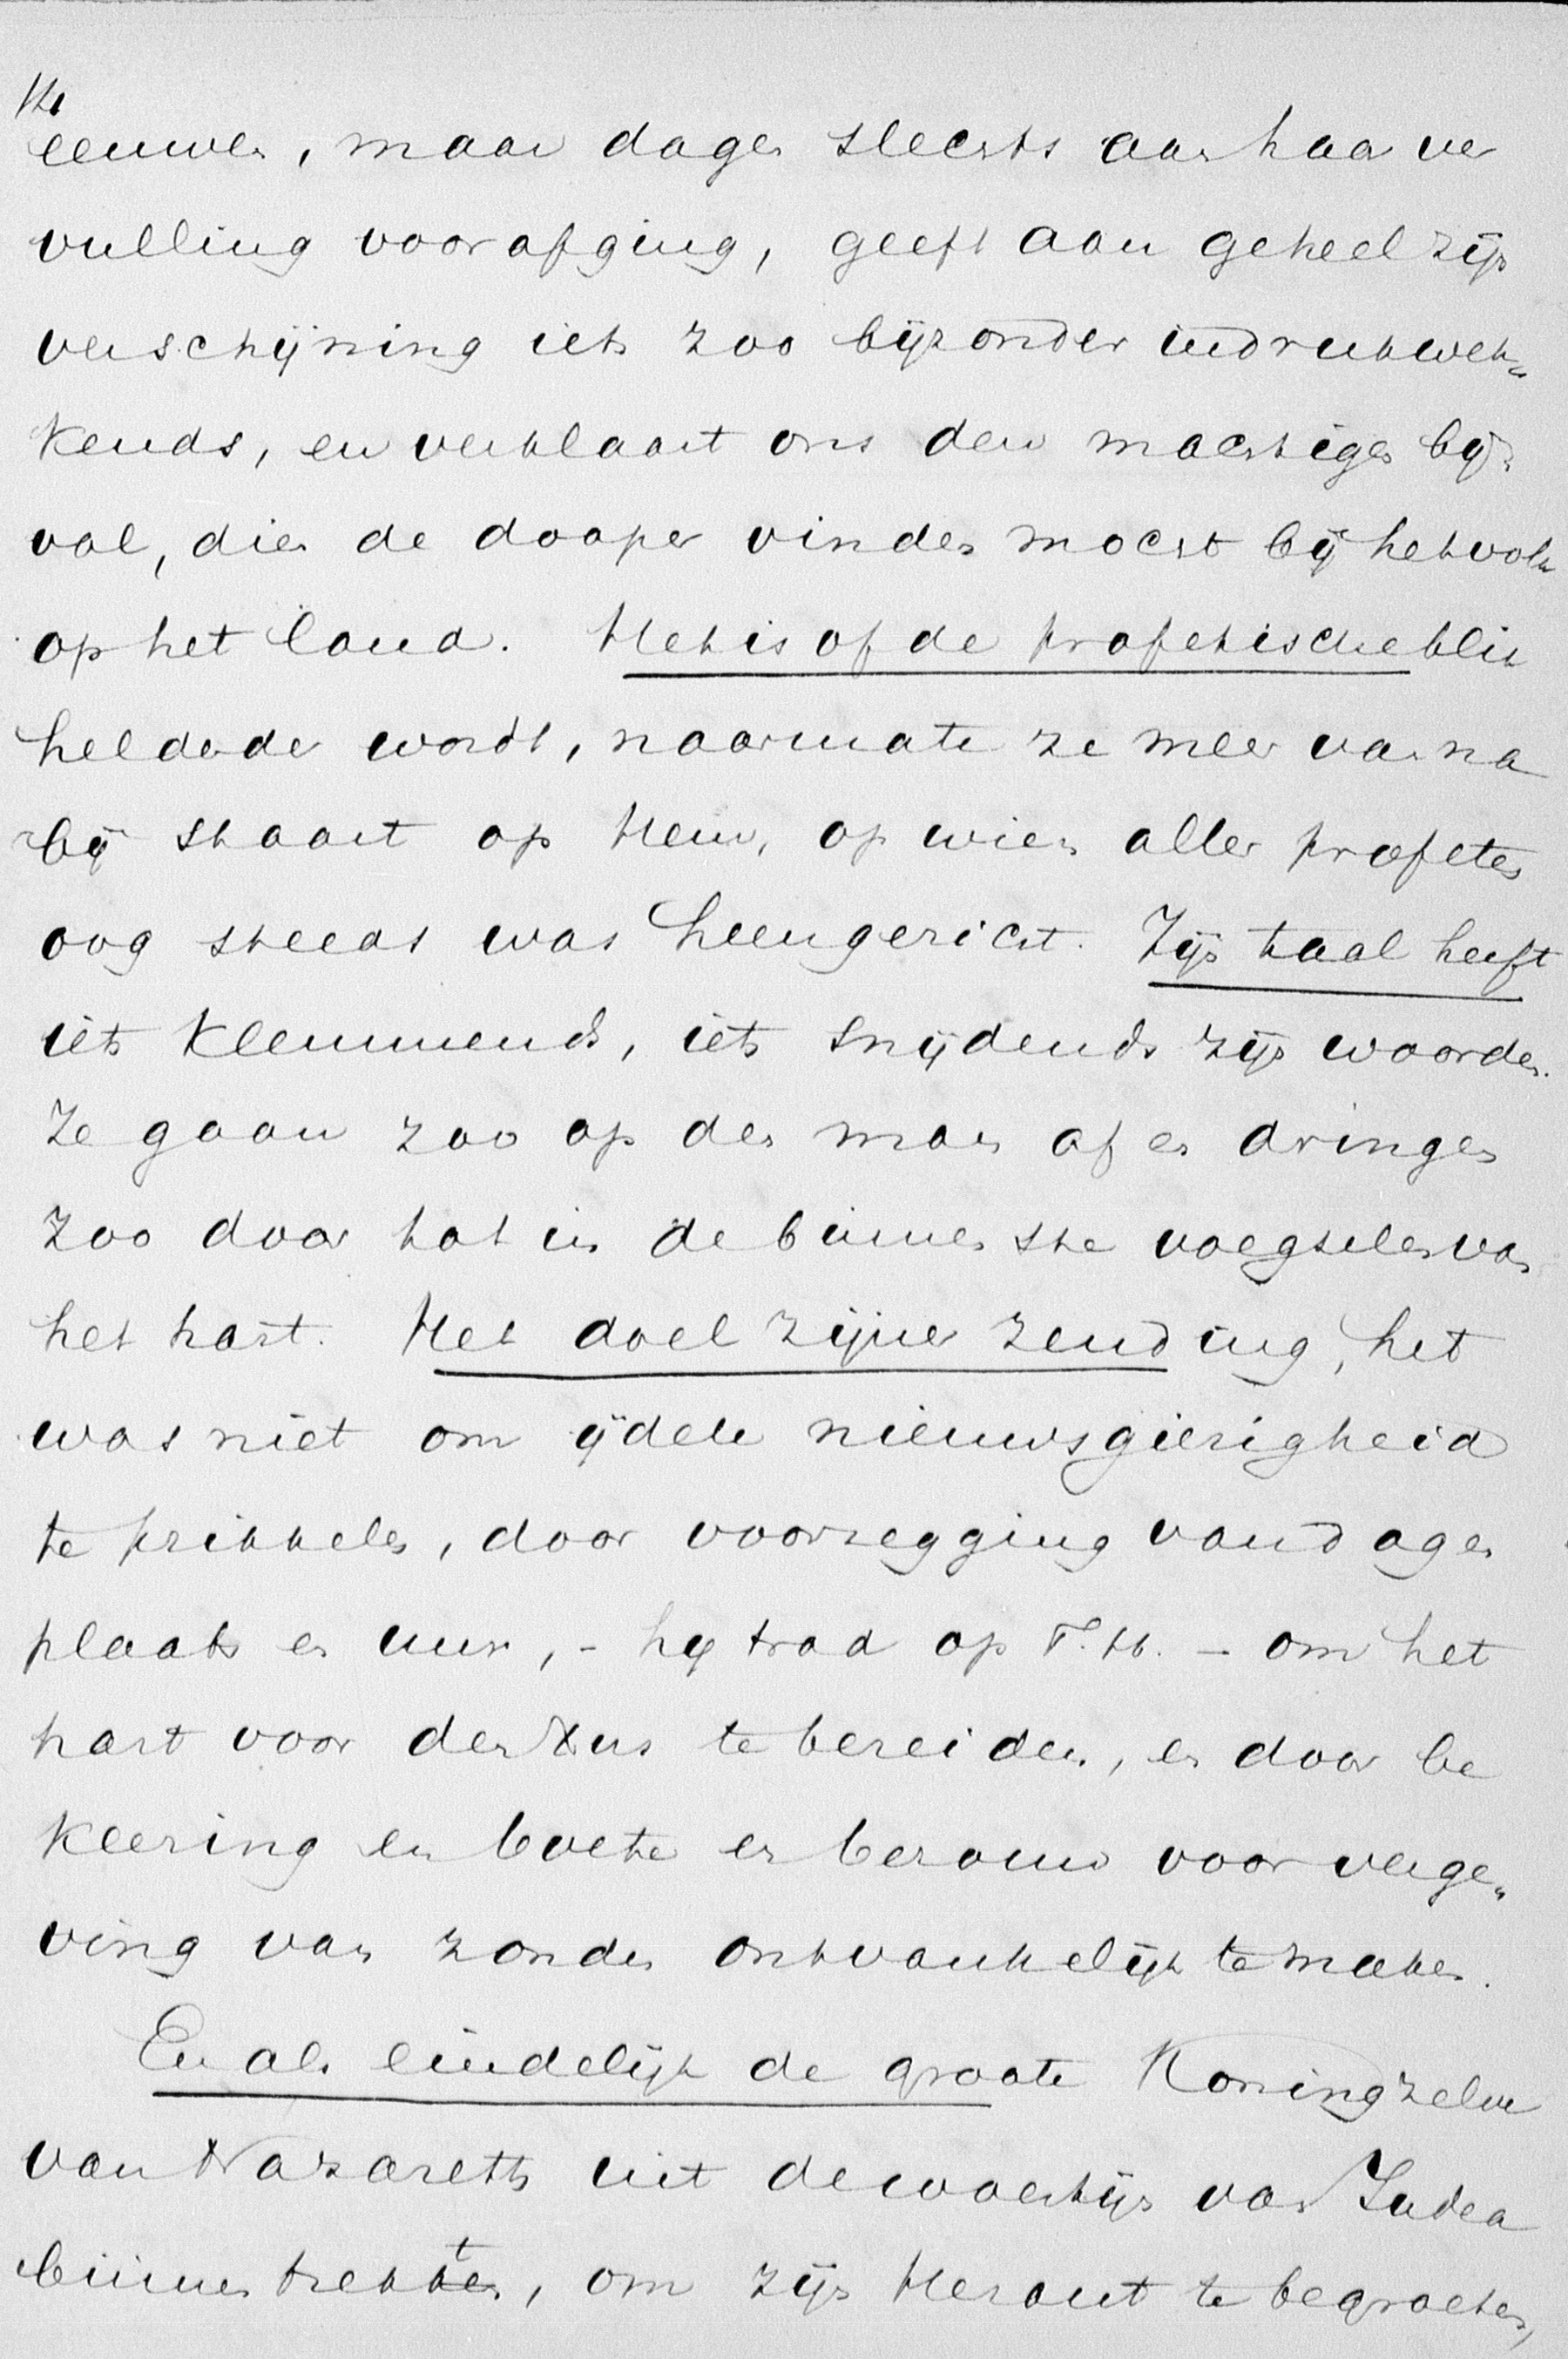 12.
eeuwen, maar dagen slechts aan haar ver
vulling voorafging, geeft aan geheel zijn
verschijning iets zoo bijzonder indrukwek„
kends, en verklaart ons den machtigen bij„
val, dien de dooper vinden mocht bij het volk
op het land. Het is of de profetische blik
helderder wordt, naarmate ze meer van na
bij staart op Hem, op wien aller profeten
oog steeds was heengericht. Zijn taal heeft
iets klemmends, iets snijdends zijn woorden.
Ze gaan zoo op den man af en dringen
zoo door tot in de binnenste voegselen van
het hart. Het doel zijner zending, het
was niet om ijdele nieuwsgierigheid
te prikkelen, door voorzegging van dagen
plaats en uur, - hij trad op T. H. - om het
hart voor den Xus te bereiden, en door be
keering en boete en berouw voor verge„
ving van zonden ontvankelijk te maken.
En als eindelijk de groote Koning zelve
van Nazareth uit de woestijn van Judea
binnentrekt, om zijn Heraut te begroeten,